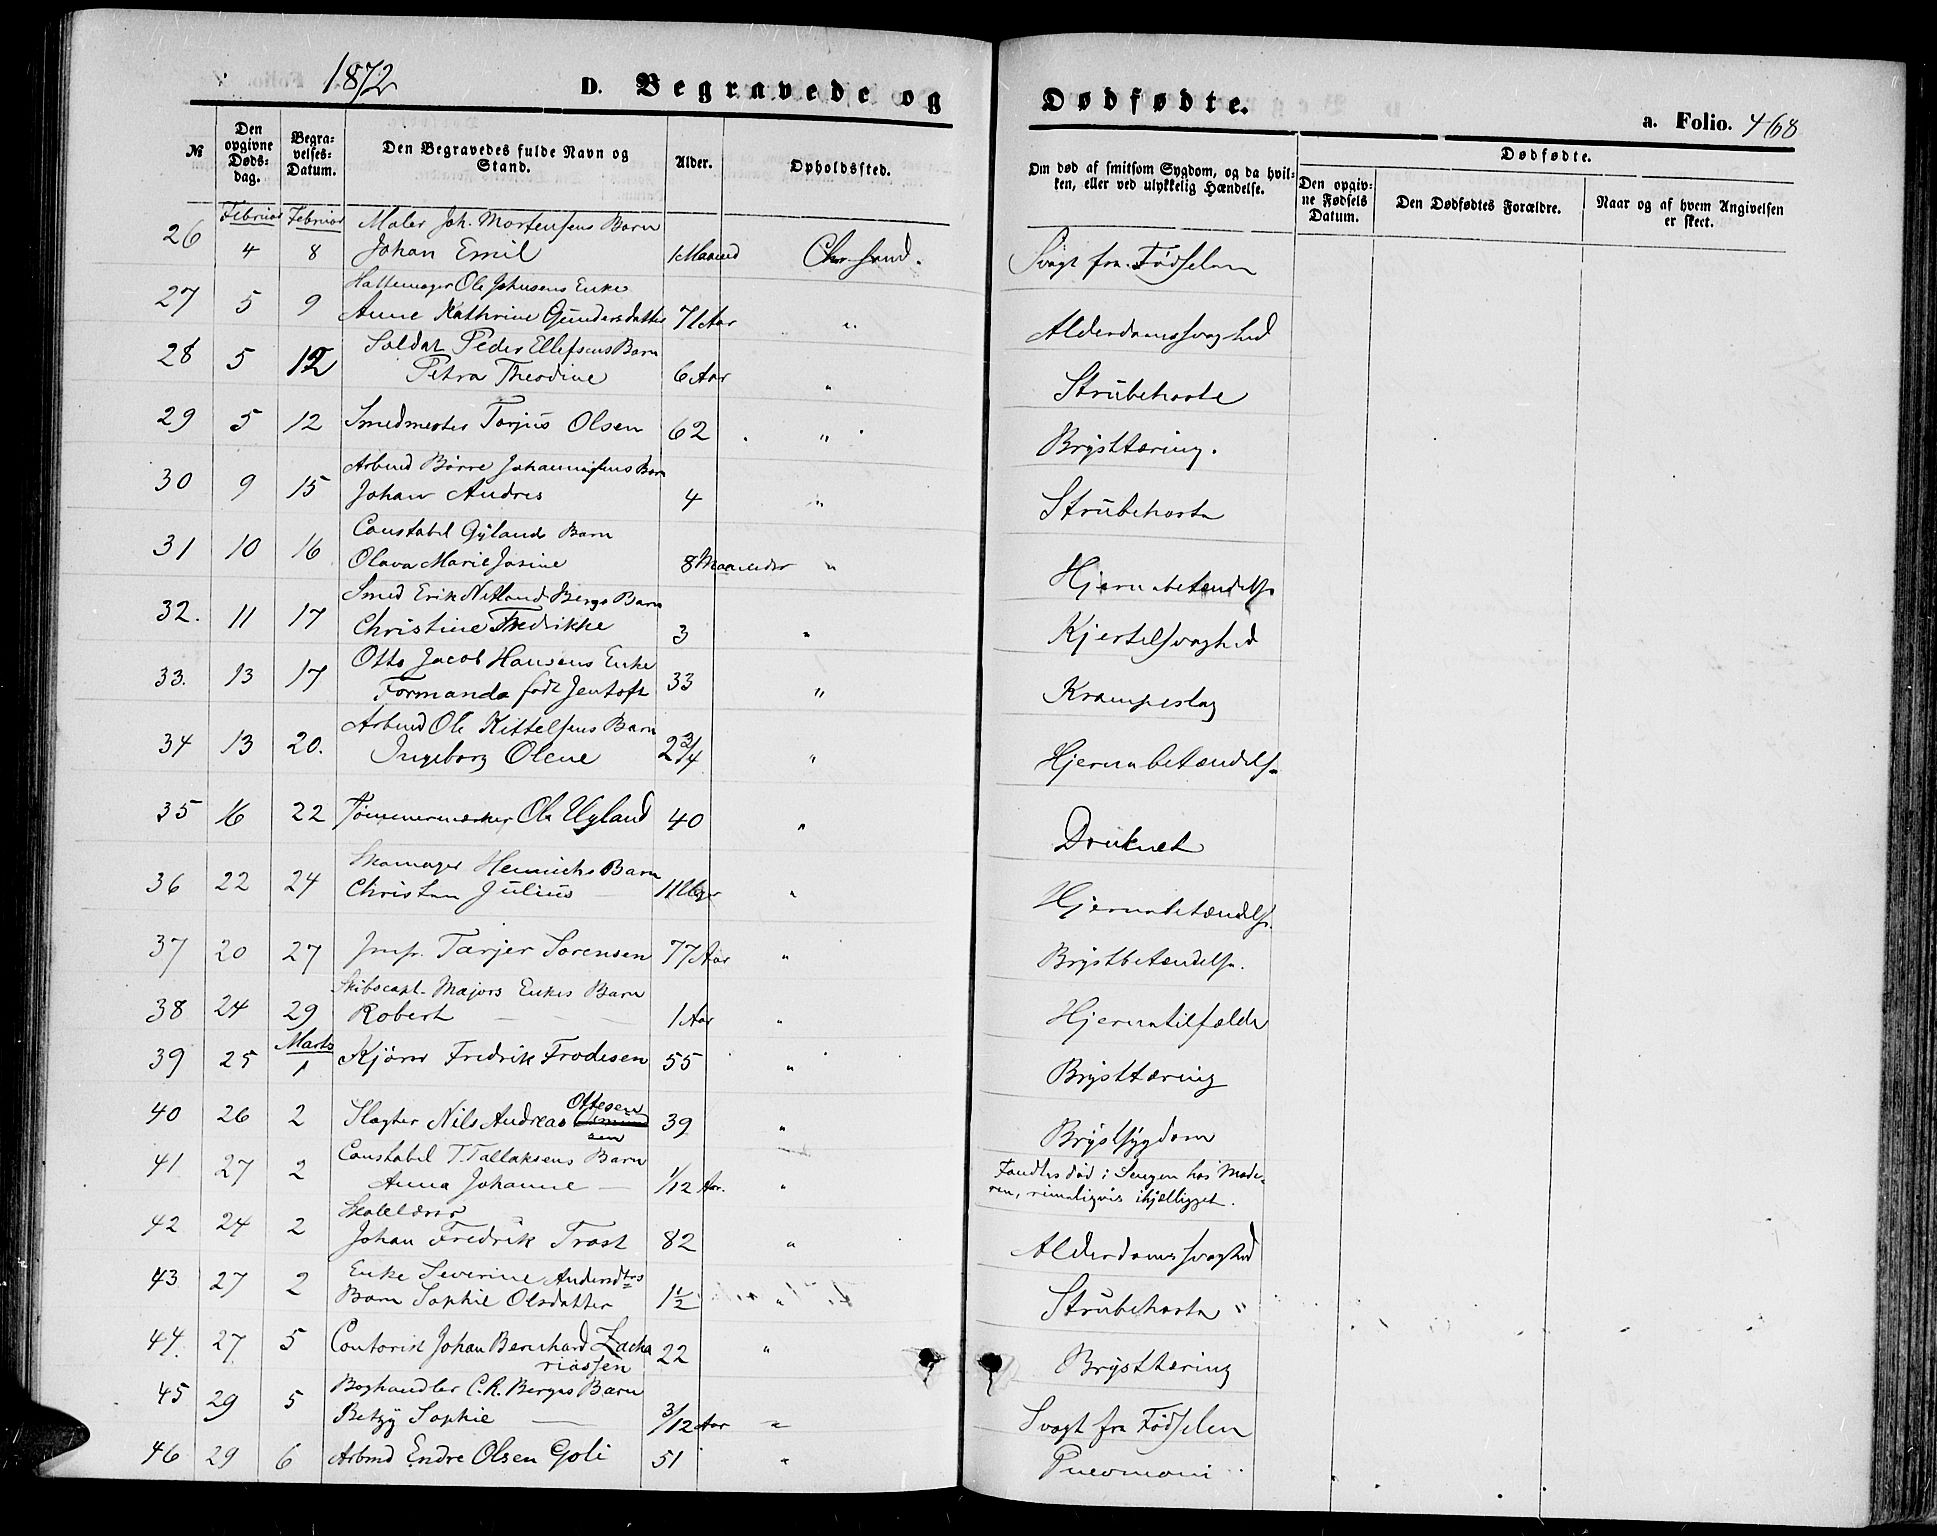 1872
D. Begravede og Dødfødte.
a. Folio. 468
№
Den opgivne Døds-dag.
Begra-velses-Datum.
Den Begravedes fulde Navn og Stand.
Alder.
Opholdssted.
Om død af smitsom Sygdom, og da hvil-ken, eller ved ulykkelig Hændelse.
Dødfødte.
Den opgiv-ne Fødsels Datum.
Den Dødfødtes Forældre.
Naar og af hvem Angivelsen er skeet.
Februar Februar Maler Joh. Mortensens Barn
26 4 8 Johan Emil 1 Maaned Chr.sand. Svagt fra Fødselen
Hattemager Ole Johnsens Enke
27 5 9 Anne Kathrine Gundersdatter 71 Aar " Alderdomssvaghed
Soldat Peder Ellefsens Barn
28 5 12 Petra Theodine 6 Aar " Strubehoste
29 5 12 Smedmester Torjus Olsen 62 " Brysttæring.
Arbmd Børre Johannesens Barn
30 9 15 Johan Andres 4 " Strubehoste
Constabel Gylands Barn
31 10 16 Olava Marie Josine 8 Maaneder " Hjernebetændelse
Smed Erik Netland Bergs Barn
32. 11 17 Christine Fredrikke 3 " Kjertelsvaghed
Otto Jacob Hansens Enke
33. 13 17 Formanda født Jentoft 33 " Krampeslag
Arbmd Ole Kittelsens Barn
34 13 20. Ingeborg Olene 2 3/4 " Hjernebetændelse
35 16 22 Tømmermærker Ole Ugland 40 " Druknet
Skomager Henrichs Barn
36 22 24 Christen Julius 11 Uger " Hjernebetændelse.
37 20 27 Jmfr. Tarjer Sorensen 77 Aar " Brystbetændelse.
Skibscapt. Majors Enkes Barn
38 24 29 Robert 1 Aar " Hjernetilfælde
Marts
39 25 1 Kjører Fredrik Frodesen 55 " Brysttæring
Ottesen
40 26 2 Slagter Nils Andreas 39 " Brystsygdom
Constabel T. Tallaksens Barn
41 27 2 Anna Johanne 1/12 Aar. " Fandtes død i Sengen hos Mode-
ren, rimeligvis ihjelligget.
Skolelærer
42 24 2 Johan Fredrik Trost 82 " Alderdomssvaghed
Enke Severine Andersdtrs
43 27 2 Barn Sophie Olsdatter 1 1/2 " Strubehoste
44. 27 5 Contorist Johan Bernhard Zacha
riassen 22 " Brysttæring
Boghandler C. R. Berges Barn
45 29 5 Betzy Sophie 3/12 Aar " Svagt fra Fødselen
46 29 6 Arbmd Endre Olsen Goli 51 " Pneomoni